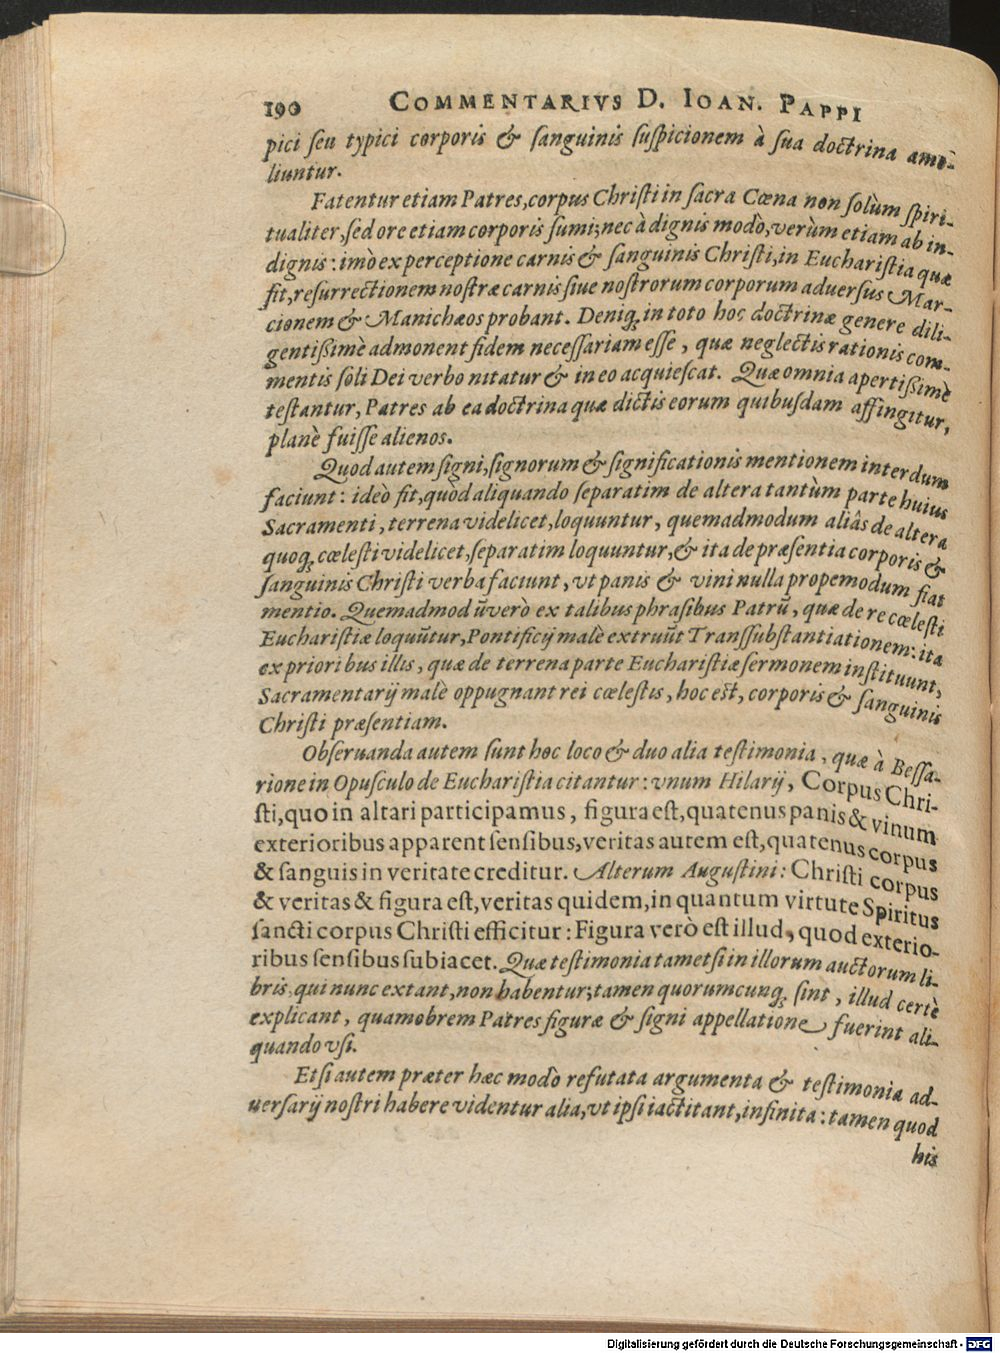 190 COMMENTARIVS D. IOAN. PAPPI
pici ſeu typici corporis & ſanguinis ſuſpicionem à ſua doctrina amo-
liuntur.
Fatentur etiam Patres, corpus Chriſti in ſacra Cœna non ſolùm ſpiri-
tualiter, ſed ore etiam corporis ſumi; nec à dignis modò, verùm etiam ab in-
dignis: imò ex perceptione carnis & ſanguinis Chriſti, in Euchariſtia quæ
fit, reſurrectionem noſtræ carnis ſiue noſtrorum corporum aduerſus Mar-
cionem & Manichæos probant. Deniq́; in toto hoc doctrinæ genere dili-
gentißimè admonent fidem neceſſariam eſſe, quæ neglectis rationis com-
mentis ſoli Dei verbo nitatur & in eo acquieſcat. Quæ omnia apertißimè
teſtantur, Patres ab ea doctrina quæ dictis eorum quibuſdam affingitur,
planè fuiſſe alienos.
Quod autem ſigni, ſignorum & ſignificationis mentionem interdum
faciunt: ideò fit, quòd aliquando ſeparatim de altera tantùm parte huius
Sacramenti, terrena videlicet, loquuntur, quemadmodum aliâs de altera
quoq́; cœleſti videlicet, ſeparatim loquuntur, & ita de præſentia corporis &
ſanguinis Chriſti verba faciunt, vt panis & vini nulla propemodum fiat
mentio. Quemadmodũ verò ex talibus phraſibus Patrũ, quæ de re cœleſti
Euchariſtiæ loquũtur, Pontificij malè extruũt Tranſſubſtantiationem: ita
ex prioribus illis, quæ de terrena parte Euchariſtiæ ſermonem inſtituunt,
Sacramentarij malè oppugnant rei cœleſtis, hoc eſt, corporis & ſanguinis
Chriſti præſentiam.
Obſeruanda autem ſunt hoc loco & duo alia teſtimonia, quæ à Beſſa-
rione in Opuſculo de Euchariſtia citantur: vnum Hilarij, Corpus Chri-
ſti, quo in altari participamus, figura eſt, quatenus panis & vinum
exterioribus apparent ſenſibus, veritas autem eſt, quatenus corpus
& ſanguis in veritate creditur. Alterum Auguſtini: Chriſti corpus
& veritas & figura eſt, veritas quidem, in quantum virtute Spiritus
ſancti corpus Chriſti efficitur: Figura verò eſt illud, quod exterio-
ribus ſenſibus ſubiacet. Quæ teſtimonia tametſi in illorum auctorum li-
bris, qui nunc extant, non habentur; tamen quorumcunq́; ſint, illud certè
explicant, quamobrem Patres figuræ & ſigni appellatione fuerint ali-
quando vſi.
Etſi autem præter hæc modò refutata argumenta & teſtimonia ad-
uerſarij noſtri habere videntur alia, vt ipſi iactitant, infinita: tamen quod
his
Digitalisierung gefördert durch die Deutsche Forschungsgemeinschaft - DFG